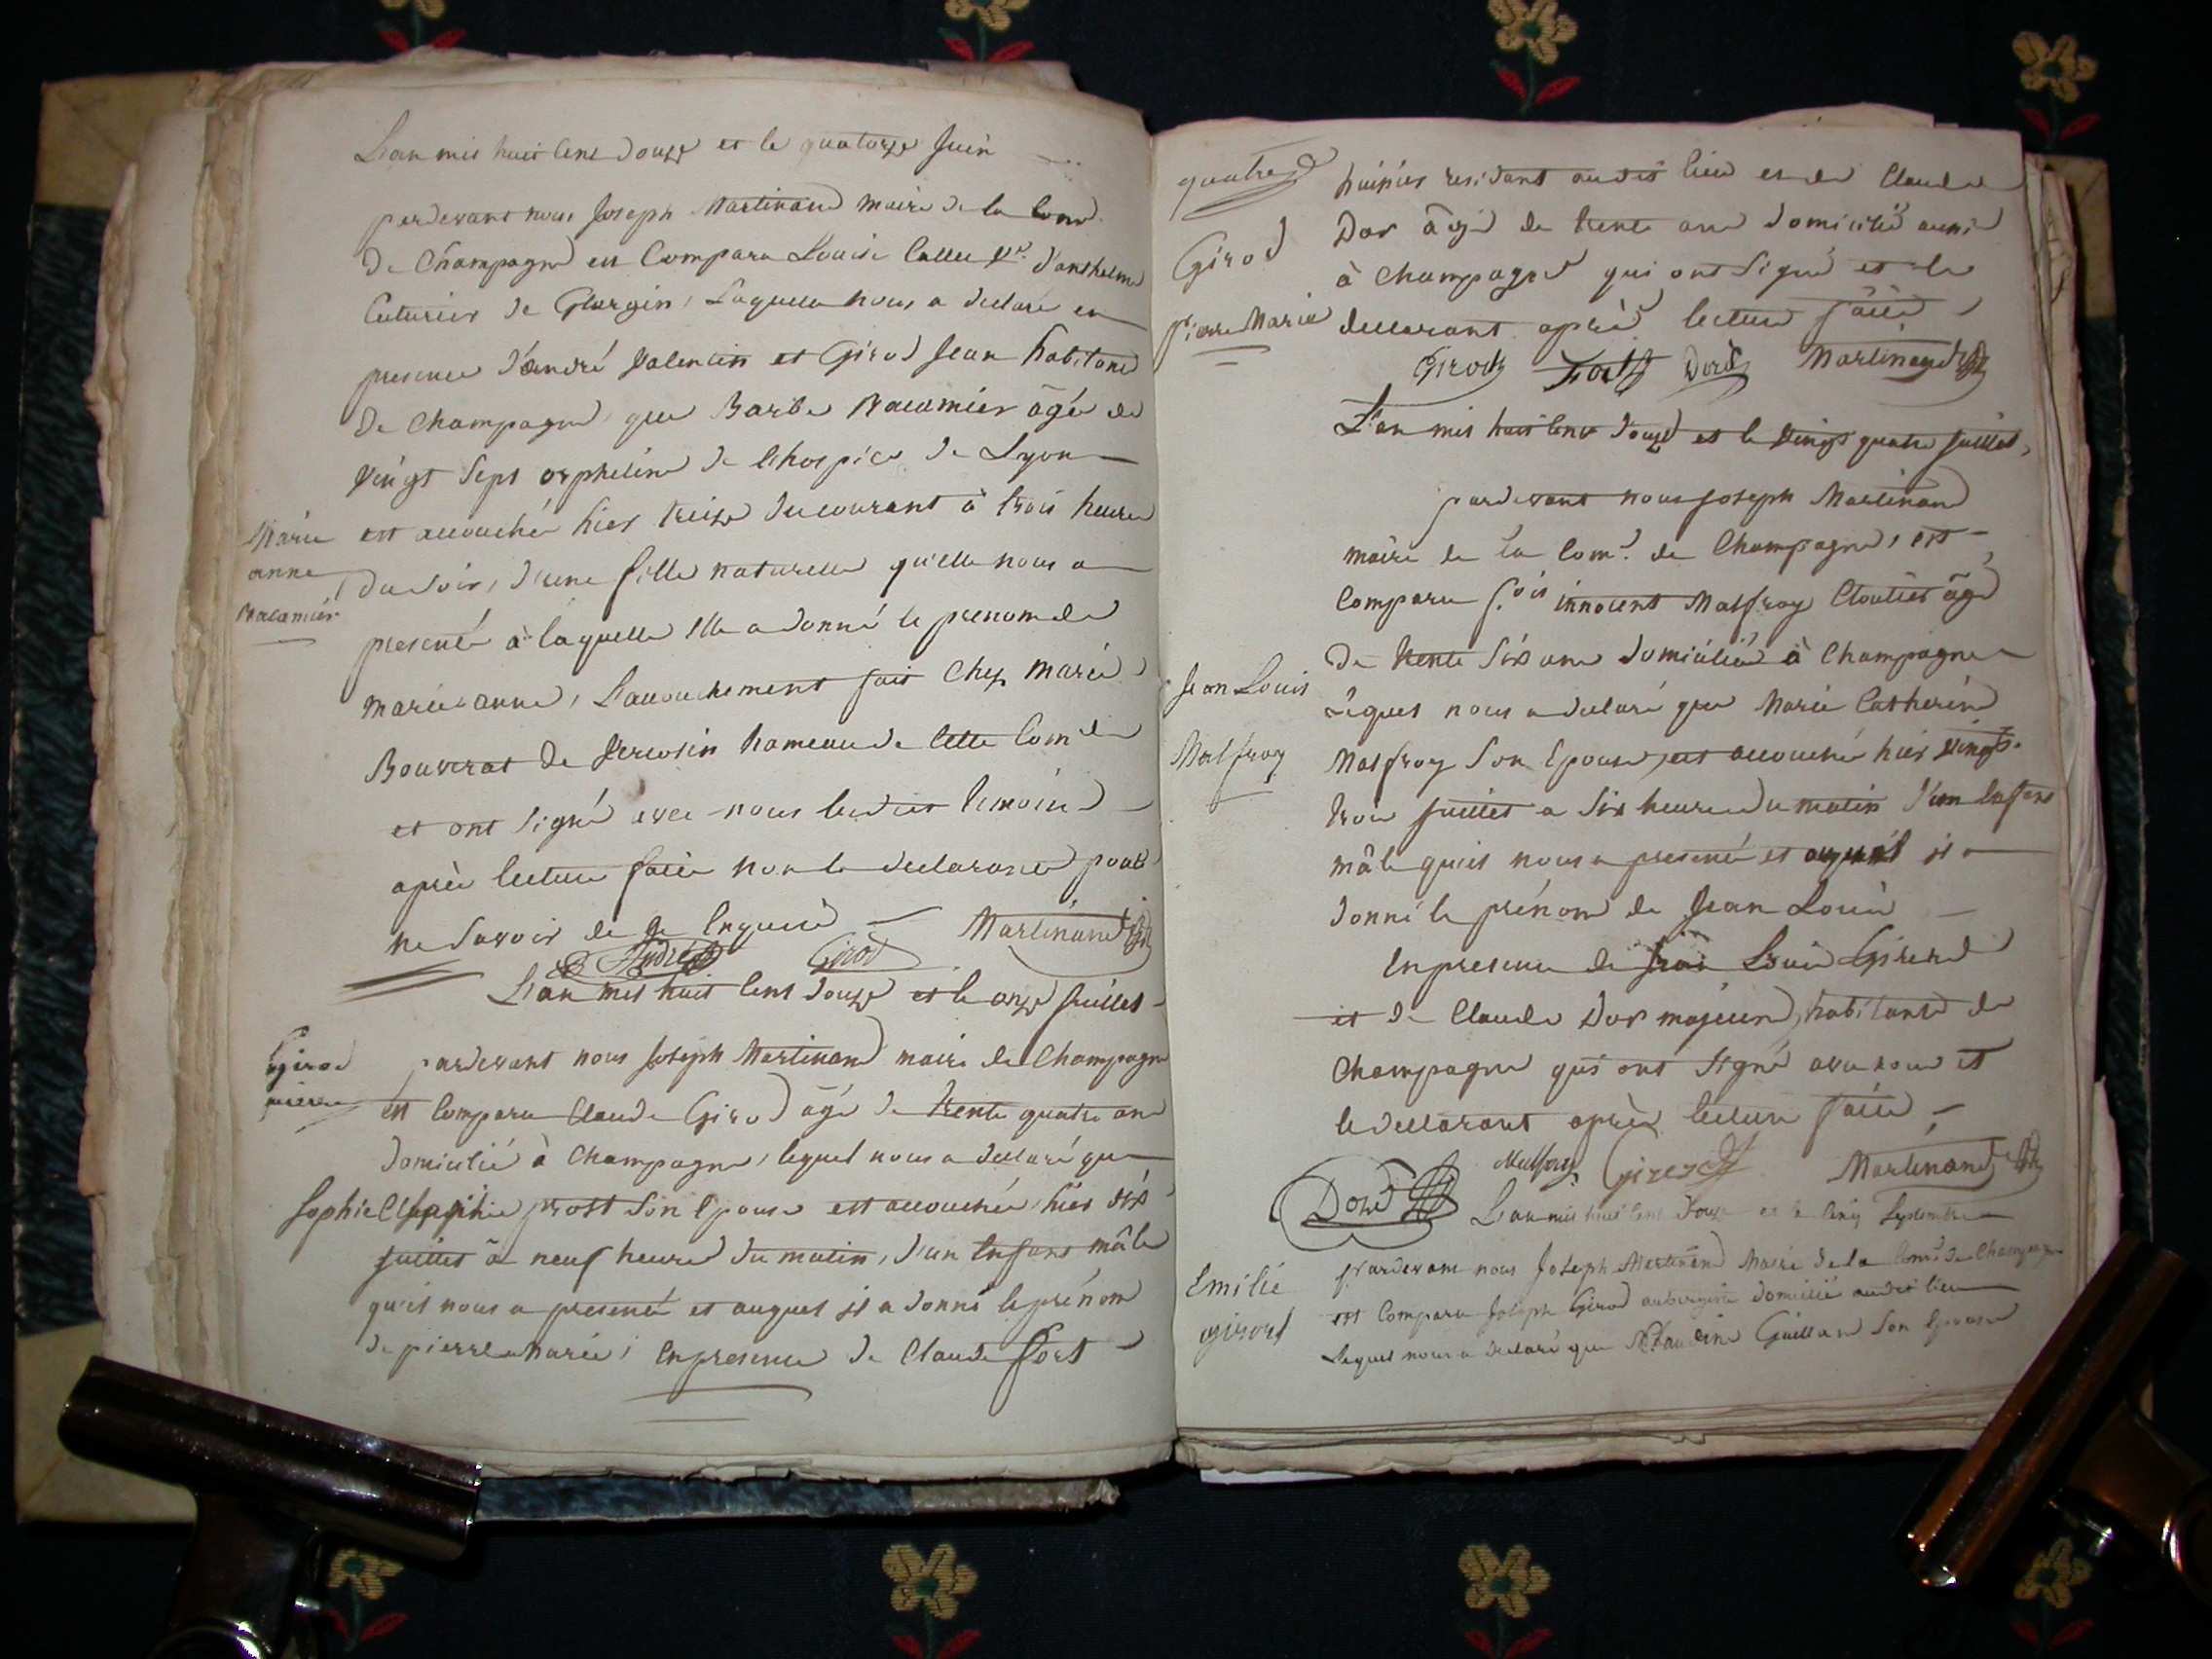 L'an mil huit cent douze et le quatorze Juin
pardevant nous Joseph Martinand maire de la Com.
De Champagne est Comparu Louise Callet Vᵉ. d'anthelme
Couturier de Glargin, Laquelle nous a declaré en
presence d'andré Valentin et Girod Jean habitant
De Champagne que Barbe Bacamier âgée de
vingt sept orpheline de l'hospice de Lyon
est accouchée hier treize du courant à trois heures
Marie
anne
Bacamier
du soir, d'une fille naturelle qu'elle nous a
presenté à laquelle elle a donné le prenom de
marie anne, L'accouchement fait Chez marie
Bouvrat de Vercosin hameau de Cette Com de
et ont signé avec nous lesdits temoins
après lecture faite non la declarante pour
ne savoir de ce enquise Martinand
André Girod
L'an mil huit cent douze et le onze Juillet
Girod
pierre
pardevant nous Joseph Martinand maire de Champagne
est Comparu Claude Girod âgé de trente quatre ans
domicilié à Champagne, lequel nous a declaré que
Sophie prost son Epouse est accouchée hier dix
Juillet à neuf heures du matin, d'un Enfant mâle
qu'il nous a presenté et auquel il a donné le prénom
de pierre marie, En presence de Claude Fort
quatre
Girod
pierre Marie
huissier residant audit lieu et de Claude
Dor âgé de trente ans domicilié aussi
à Champagne qui ont signé et le
declarant après lecture faite
Girod Fort Dord Martinand
L'an mil huit cent douze et le vingt quatre Juillet,
pardevant nous Joseph Martinand
maire de la Com.ᵉ de Champagne, est
Comparu f.ois innocent Malfroy Cloutier âgé
De trente six ans domicilié à Champagne
Jean Louis
Malfroy
lequel nous a declaré que Marie Catherine
Malfroy Son Epouse est accouchée hier vingt
trois Juillet a six heures du matin d'un Enfant
mâle qu'il nous a presenté et auquel il a
donné le prénom de Jean Louis
En presence de Louis Girerd
et de Claude Dor majeurs, habitants de
Champagne qui ont signé avec nous et
le declarant après lecture faite
Malfroy Girerd Martinand
Dord
L'an mil huit cent douze et le cinq Septembre
Emilie
girord
Pardevant nous Joseph Martinand Maire de la Com.ᵉ de Champagne
est Comparu Joseph Girod aubergiste domicilié audit lieu
Lequel nous a declaré que Claudine Guilland Son Epouse